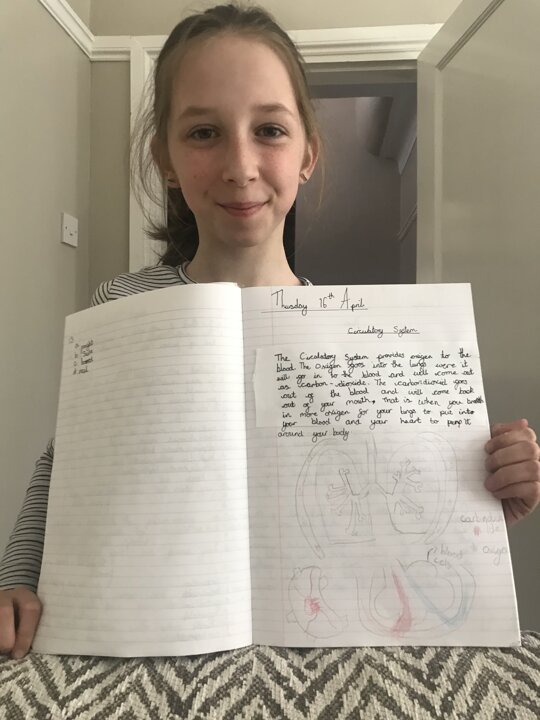 Thursday 16th April
Circulatory System
The Circulatory System provides oxegen to the
blood. The oxegen goes into the lungs were it
will go in to the blood and will come out
as carbon-dioxide. The carbondioxid goes
out of the blood and will come back
out of your mouth, that is when you breath
in more oxegen for your lungs to put into
your blood and your heart to pump it
around your body
blood
cells